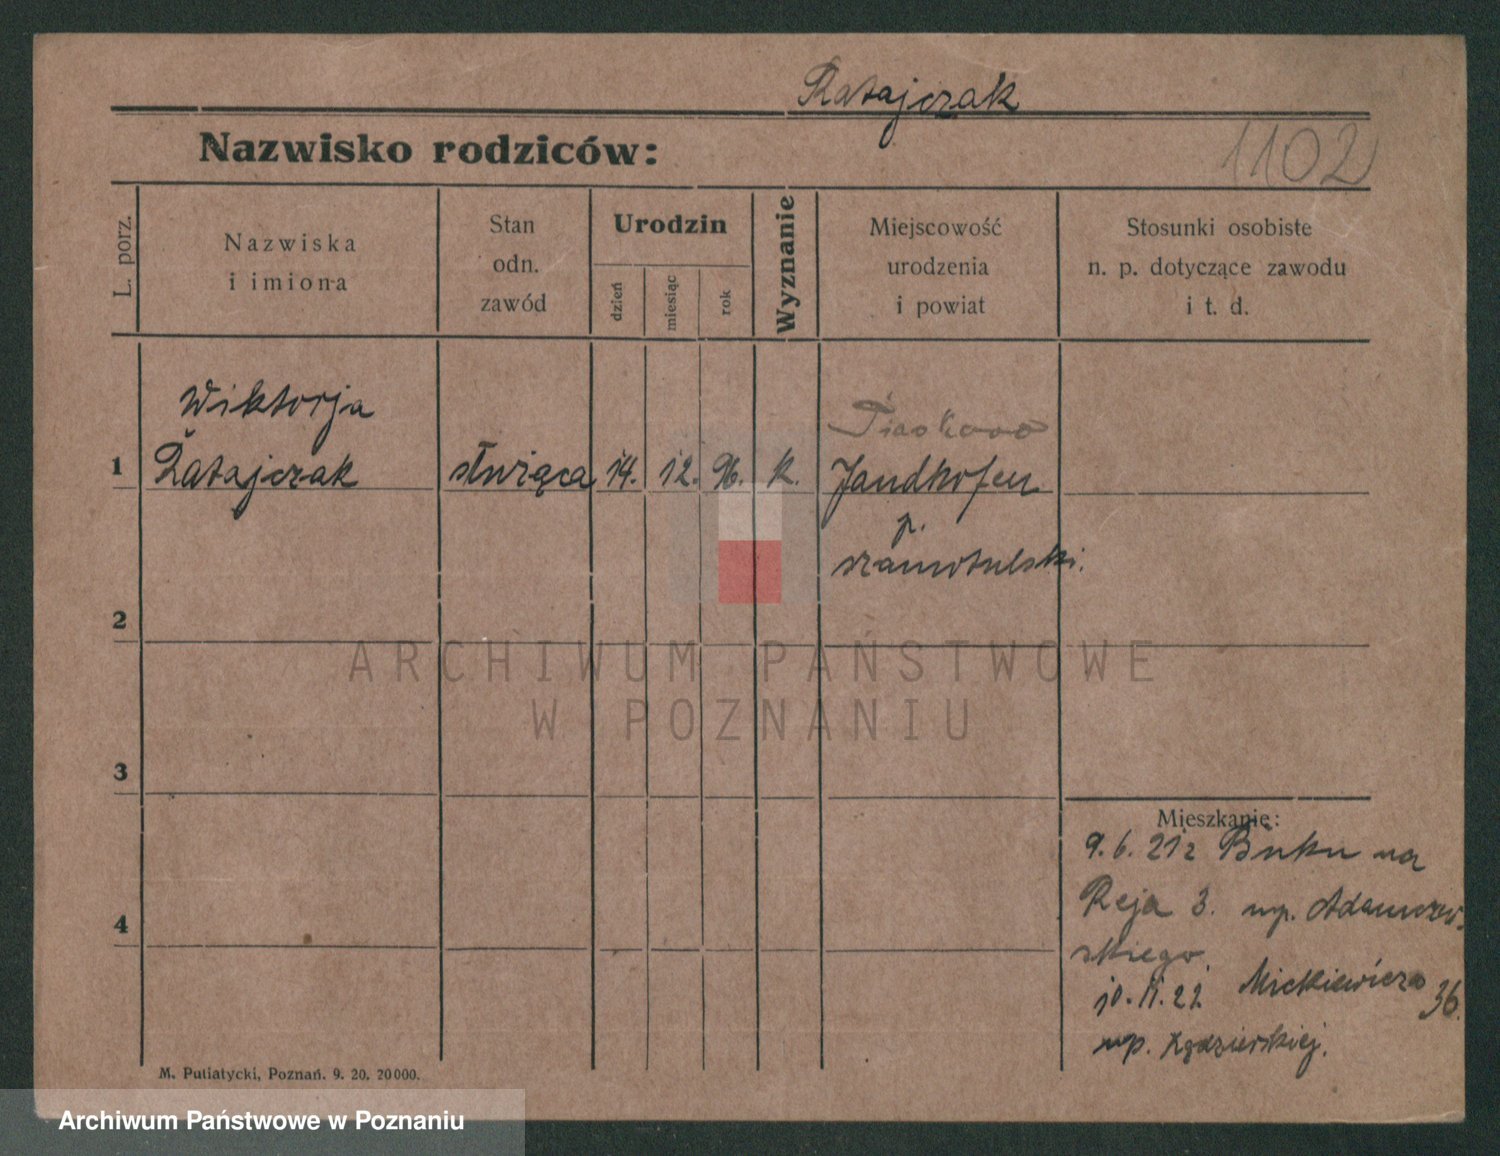 Ratajczak
Nazwisko rodziców:
1102
L. porz.
Nazwiska
i imiona
Stan
odn.
zawód
Urodzin
dzień
miesiąc
rok
Wyznanie
Miejscowość
urodzenia
i powiat
Stosunki osobiste
n. p. dotyczące zawodu
i t. d.
Wiktorja
Piaskowo
1 Ratajczak służąca 14. 12. 96. k. Jandhofen
p.
szamotulski.
2
3
4
Mieszkanie:
9.6.21 z Buku na
Reja 3. wp. Adamczew-
skiego.
10.11.22 Mickiewicza 36.
wp.
M. Putiatycki, Poznań. 9. 20. 20000.
ARCHIWUM PAŃSTWOWE
W POZNANIU
Archiwum Państwowe w Poznaniu